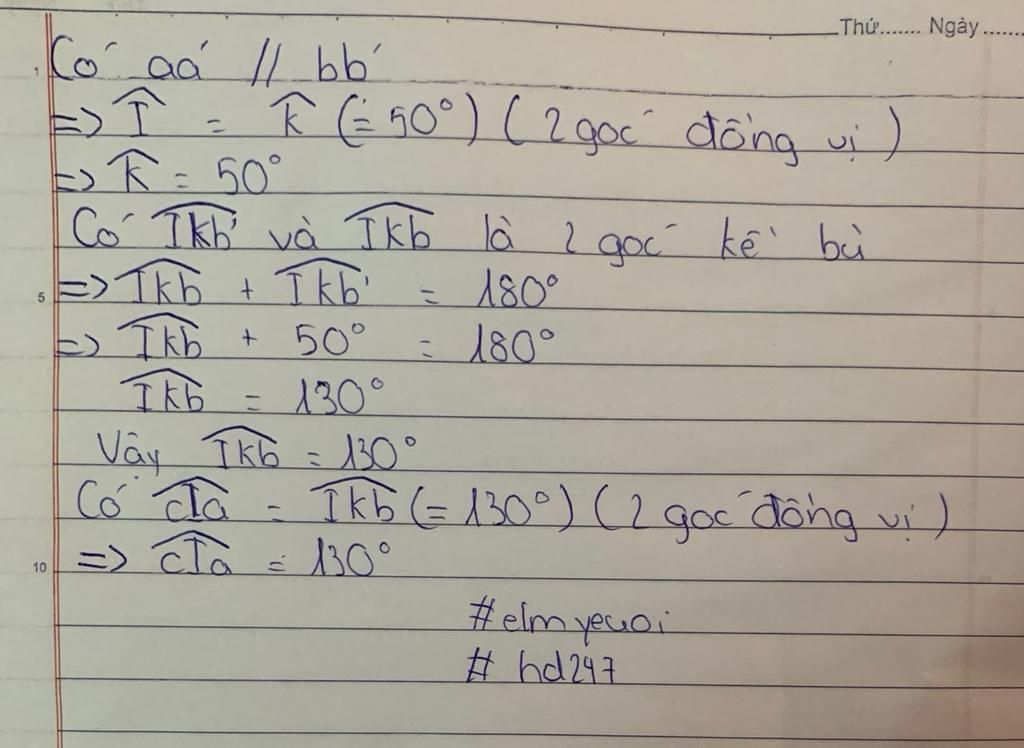 Thứ....... Ngày.......
1
Có aa' // bb'
=> Î = k̂ (= 50°) (2 góc đồng vị)
=> k̂ = 50°
Có Ikb' và Ikb là 2 góc kề bù
5
=> Ikb + Ikb' = 180°
=> Ikb + 50° = 180°
Ikb = 130°
Vây Ikb = 130°
Có cIa = Ikb (= 130°) (2 góc đồng vị)
10
=> cIa = 130°
#elmyeuoi
# hd247